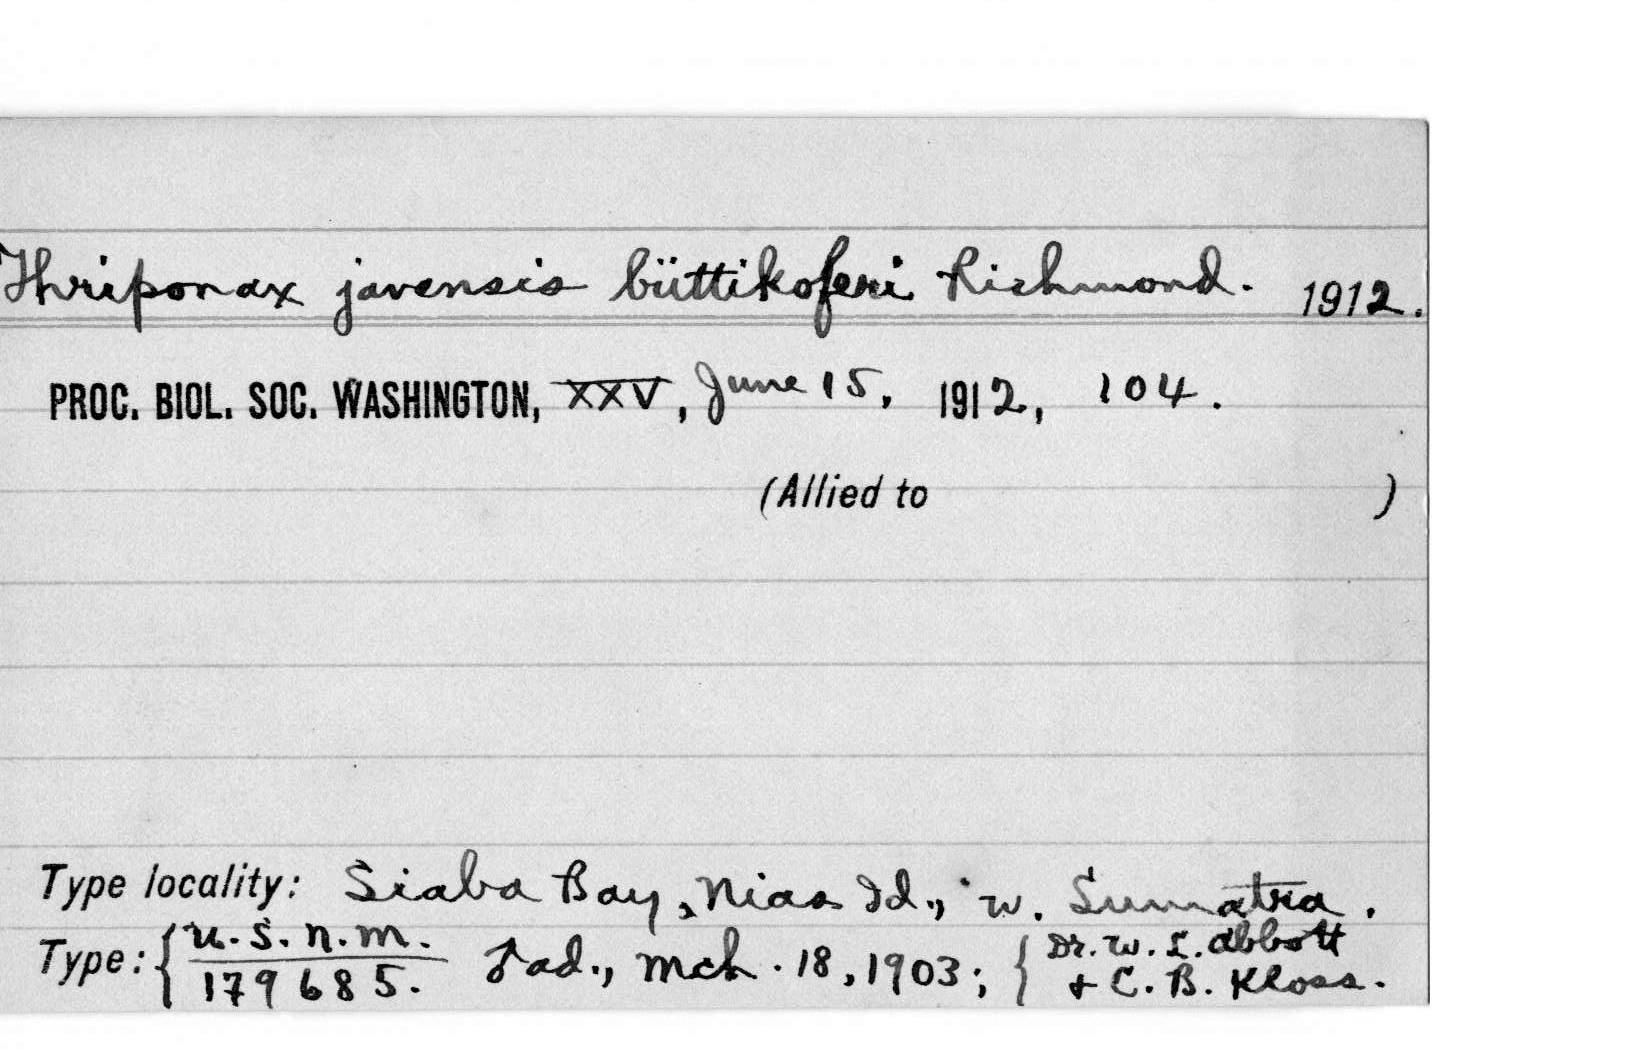 Thriponax javensis büttikoferi Richmond. 1912.
PROC. BIOL. SOC. WASHINGTON, XXV, June 15, 1912, 104.
(Allied to )
Type locality: Siaba Bay, Nias Id., w. Sumatra.
Type: { U.S.N.M. 179685. ♂ ad., Mch. 18, 1903; { Dr. W. L. Abbott
+ C. B. Kloss.